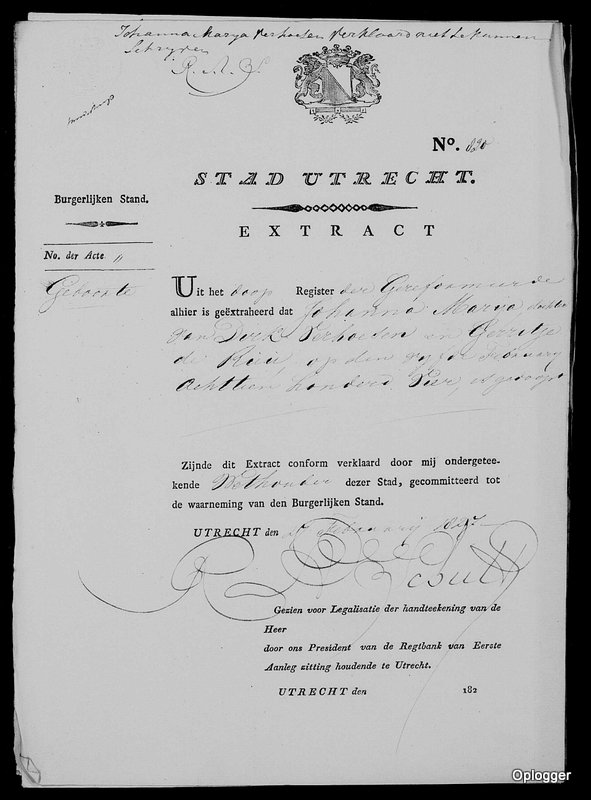 Johanna Marya Verhoesen verklaard niet te kunnen
Schryven
R. A. B.
No. 890
STAD UTRECHT.
EXTRACT
Burgerlijken Stand.
No. der Acte
Geboorte
Uit het doop Register der Gereformeerde
alhier is geëxtraheerd dat Johanna Marya dochter
van Dirk Verhoesen en Gerritje
de Rúú, op den February
Achttien honderd Vier, is gedoopt
Zijnde dit Extract conform verklaard door mij ondergetee-
kende Wethouder dezer Stad, gecommitteerd tot
de waarneming van den Burgerlijken Stand.
UTRECHT den 5 February
Gezien voor Legalisatie der handteekening van de
Heer
door ons President van de Regtbank van Eerste
Aanleg zitting houdende te Utrecht.
UTRECHT den 182
Oplogger